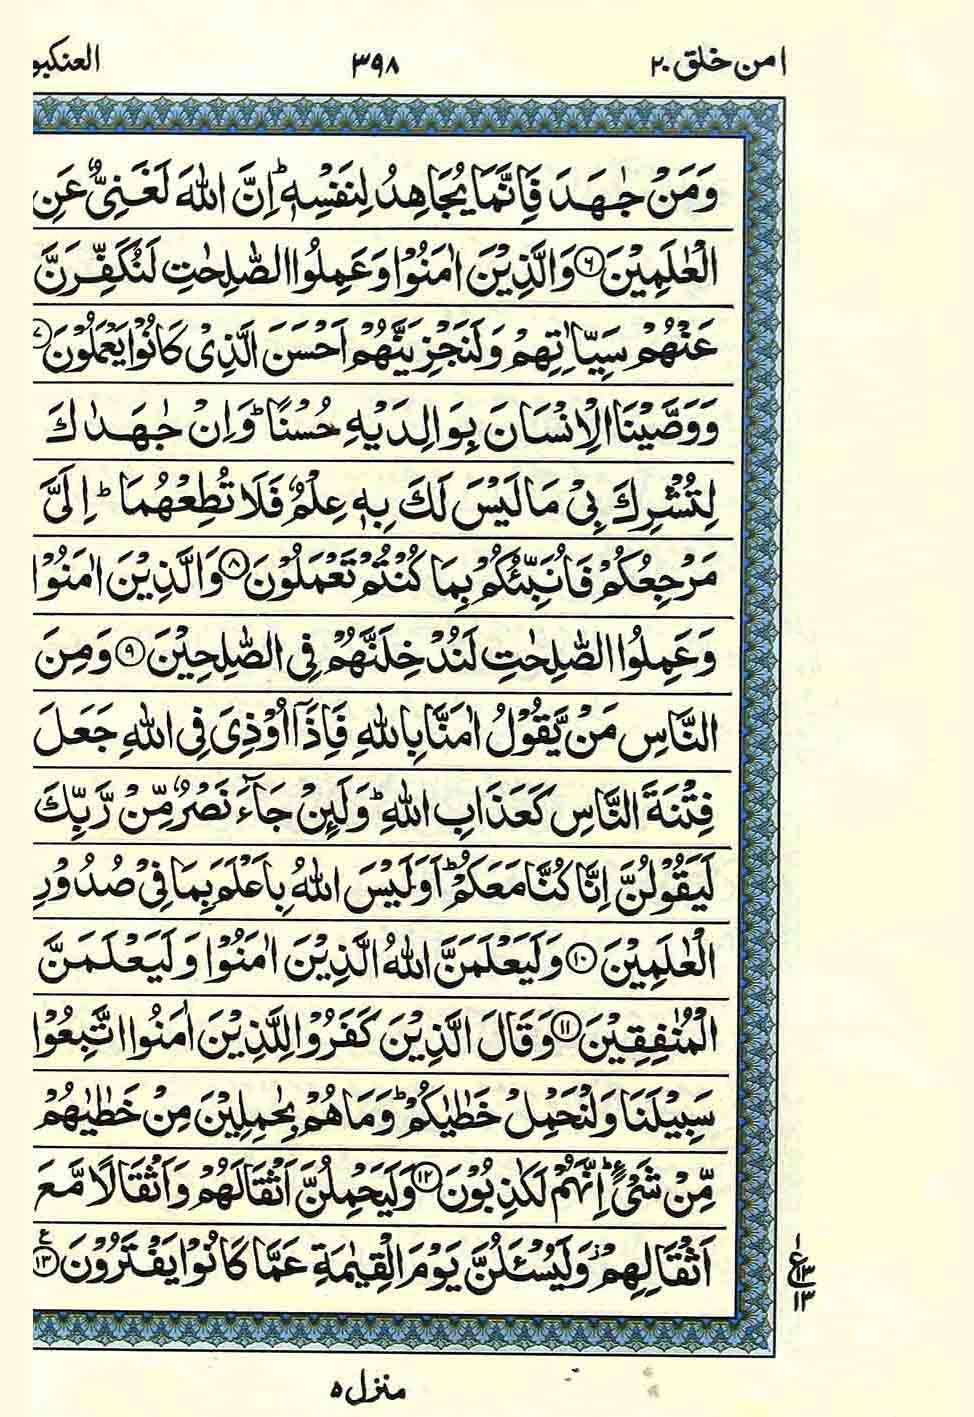 امن خلق ۲۰ ۳۹۸ العنکبو
وَمَنْ جٰهَدَ فَاِنَّمَا يُجَاهِدُ لِنَفْسِهٖ ؕ اِنَّ اللّٰهَ لَغَنِىٌّ عَنِ
الْعٰلَمِيْنَ ﴿۶﴾ وَالَّذِيْنَ اٰمَنُوْا وَعَمِلُوا الصّٰلِحٰتِ لَنُكَفِّرَنَّ
عَنْهُمْ سَيِّاٰتِهِمْ وَلَنَجْزِيَنَّهُمْ اَحْسَنَ الَّذِىْ كَانُوْا يَعْمَلُوْنَ ﴿۷﴾
وَوَصَّيْنَا الْاِنْسَانَ بِوَالِدَيْهِ حُسْنًا ؕ وَاِنْ جٰهَدٰكَ
لِتُشْرِكَ بِىْ مَا لَيْسَ لَكَ بِهٖ عِلْمٌ فَلَا تُطِعْهُمَا ؕ اِلَىَّ
مَرْجِعُكُمْ فَاُنَبِّئُكُمْ بِمَا كُنْتُمْ تَعْمَلُوْنَ ﴿۸﴾ وَالَّذِيْنَ اٰمَنُوْا
وَعَمِلُوا الصّٰلِحٰتِ لَنُدْخِلَنَّهُمْ فِى الصّٰلِحِيْنَ ﴿۹﴾ وَمِنَ
النَّاسِ مَنْ يَّقُوْلُ اٰمَنَّا بِاللّٰهِ فَاِذَاۤ اُوْذِىَ فِى اللّٰهِ جَعَلَ
فِتْنَةَ النَّاسِ كَعَذَابِ اللّٰهِ ؕ وَلَئِنْ جَآءَ نَصْرٌ مِّنْ رَّبِّكَ
لَيَقُوْلُنَّ اِنَّا كُنَّا مَعَكُمْ ؕ اَوَلَيْسَ اللّٰهُ بِاَعْلَمَ بِمَا فِىْ صُدُوْرِ
الْعٰلَمِيْنَ ﴿۱۰﴾ وَلَيَعْلَمَنَّ اللّٰهُ الَّذِيْنَ اٰمَنُوْا وَلَيَعْلَمَنَّ
الْمُنٰفِقِيْنَ ﴿۱۱﴾ وَقَالَ الَّذِيْنَ كَفَرُوْا لِلَّذِيْنَ اٰمَنُوا اتَّبِعُوْا
سَبِيْلَنَا وَلْنَحْمِلْ خَطٰيٰكُمْ ؕ وَمَا هُمْ بِحٰمِلِيْنَ مِنْ خَطٰيٰهُمْ
مِّنْ شَىْءٍ ؕ اِنَّهُمْ لَكٰذِبُوْنَ ﴿۱۲﴾ وَلَيَحْمِلُنَّ اَثْقَالَهُمْ وَاَثْقَالًا مَّعَ
اَثْقَالِهِمْ ؗ وَلَيُسْئَلُنَّ يَوْمَ الْقِيٰمَةِ عَمَّا كَانُوْا يَفْتَرُوْنَ ﴿۱۳﴾ ع
۱
ع ۱۳
۱۳
منزل ۵